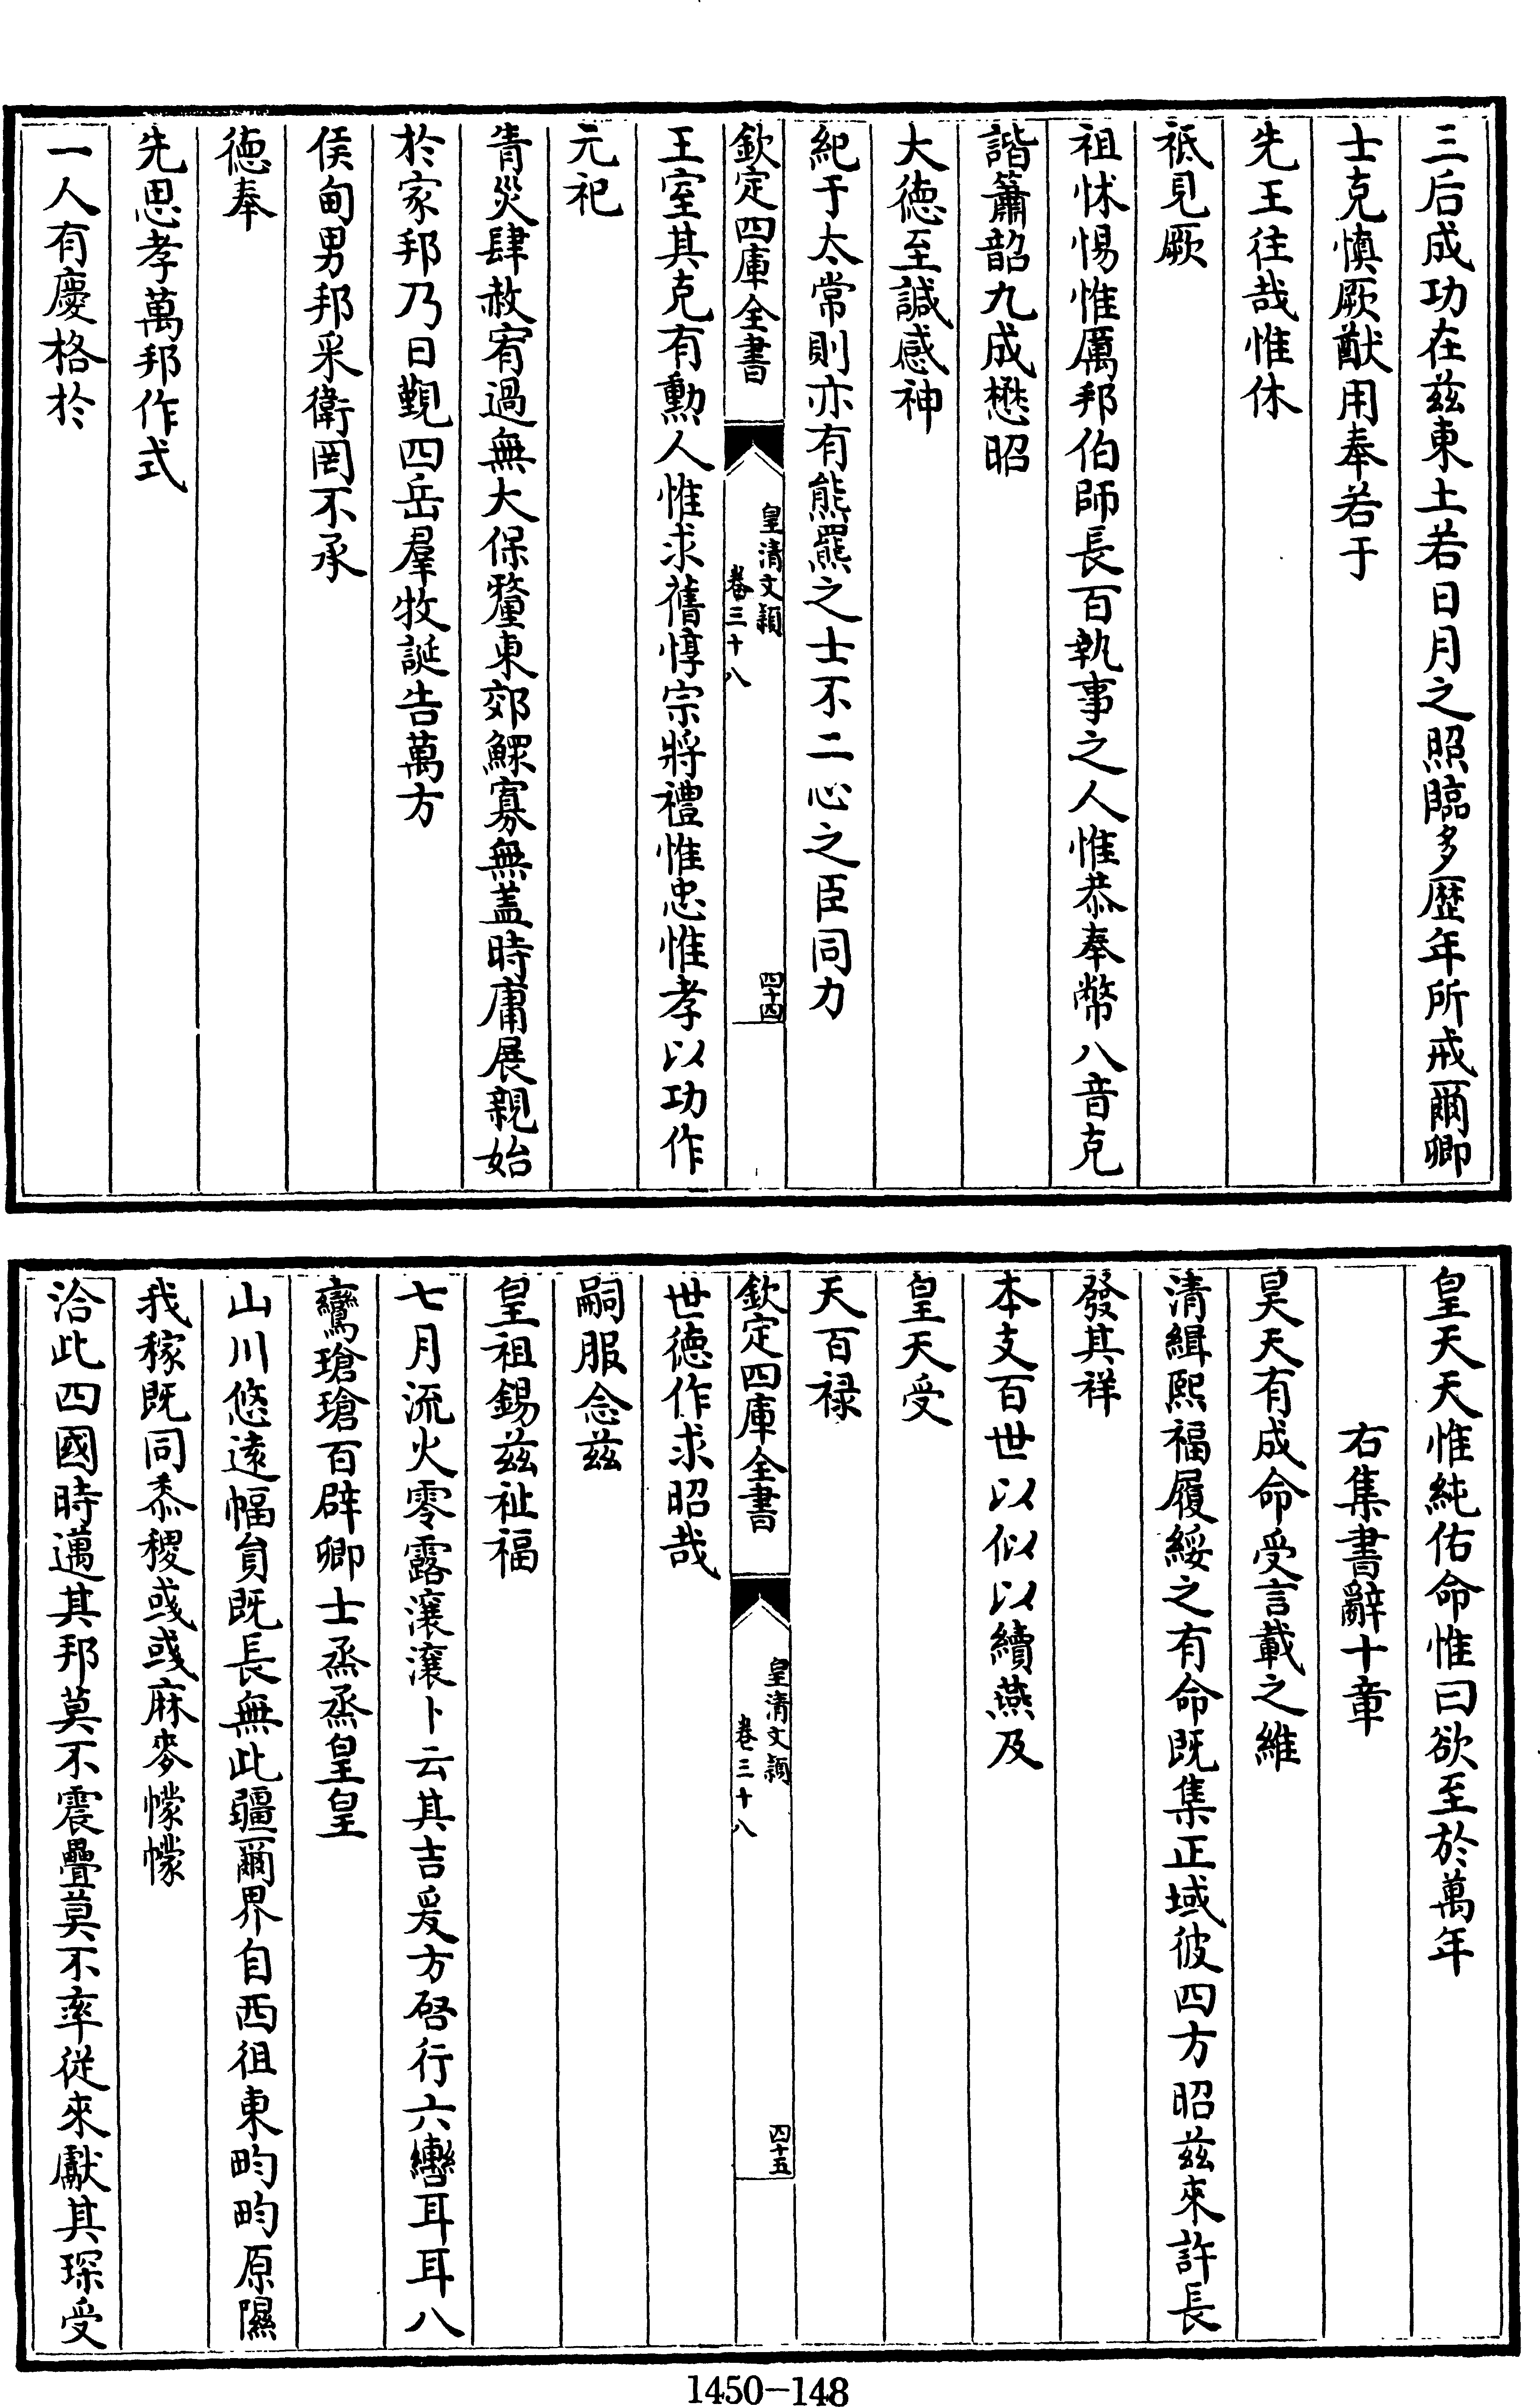 三后成功在茲東土若日月之照臨多歴年所戒爾卿
士克慎厥猷用奉若于
先王往哉惟休
祗見厥
祖怵惕惟厲邦伯師長百執事之人惟恭奉幣八音克
諧簫韶九成懋昭
大德至諴感神
紀于太常則亦有熊羆之士不二心之臣同力
欽定四庫全書
皇清文穎
卷三十八
四十四
王室其克有勲人惟求舊惇宗將禮惟忠惟孝以功作
元祀
眚災肆赦宥過無大保釐東郊鰥寡無蓋時庸展親始
於家邦乃日覲四岳羣牧誕告萬方
侯甸男邦采衛罔不承
德奉
先思孝萬邦作式
一人有慶格於
皇天天惟純佑命惟曰欲至於萬年
右集書辭十章
昊天有成命受言載之維
清緝熙福履綏之有命既集正域彼四方昭茲來許長
發其祥
本支百世以似以續燕及
皇天受
天百禄
欽定四庫全書
皇清文穎
卷三十八
四十五
世德作求昭哉
嗣服念茲
皇祖錫茲祉福
七月流火零露瀼瀼卜云其吉爰方啓行六轡耳耳八
鸞瑲瑲百辟卿士烝烝皇皇
山川悠遠幅員既長無此疆爾界自西徂東畇畇原隰
我稼既同黍稷彧彧麻麥幪幪
洽此四國時邁其邦莫不震疊莫不率從來獻其琛受
1450-148